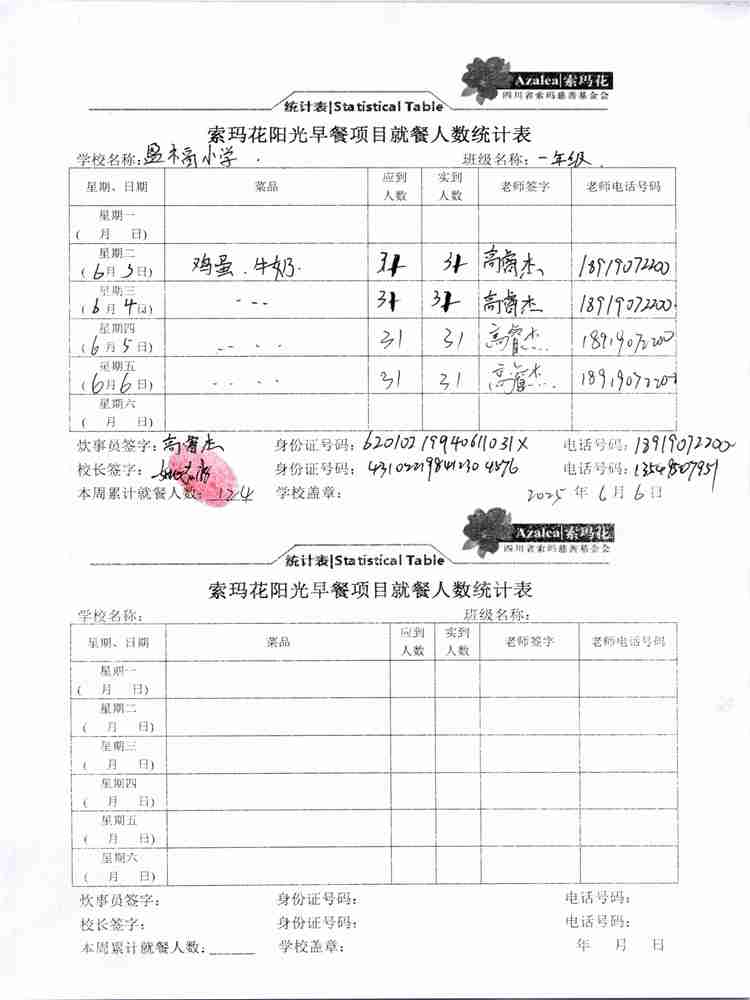 Azalea|索玛花
四川省索玛慈善基金会
统计表|Statistical Table
索玛花阳光早餐项目就餐人数统计表
学校名称：盈福小学 班级名称：一年级
星期、日期 菜品 应到人数 实到人数 老师签字 老师电话号码
星期一
( 月 日)
星期二
(6月3日) 鸡蛋、牛奶. 31 31 高睿杰 18919072200
星期三
(6月4日) --- 31 31 高睿杰 18919072200
星期四
(6月5日) ---- 31 31 高睿杰 18919072200
星期五
(6月6日) ---- 31 31 高睿杰 18919072200
星期六
( 月 日)
炊事员签字：高睿杰 身份证号码：62010219940611031X 电话号码：18919072200
校长签字： 身份证号码： 电话号码：
本周累计就餐人数：124 学校盖章： 2025年6月6日
Azalea|索玛花
四川省索玛慈善基金会
统计表|Statistical Table
索玛花阳光早餐项目就餐人数统计表
学校名称： 班级名称：
星期、日期 菜品 应到人数 实到人数 老师签字 老师电话号码
星期一
( 月 日)
星期二
( 月 日)
星期三
( 月 日)
星期四
( 月 日)
星期五
( 月 日)
星期六
( 月 日)
炊事员签字： 身份证号码： 电话号码：
校长签字： 身份证号码： 电话号码：
本周累计就餐人数：_____ 学校盖章： 年 月 日